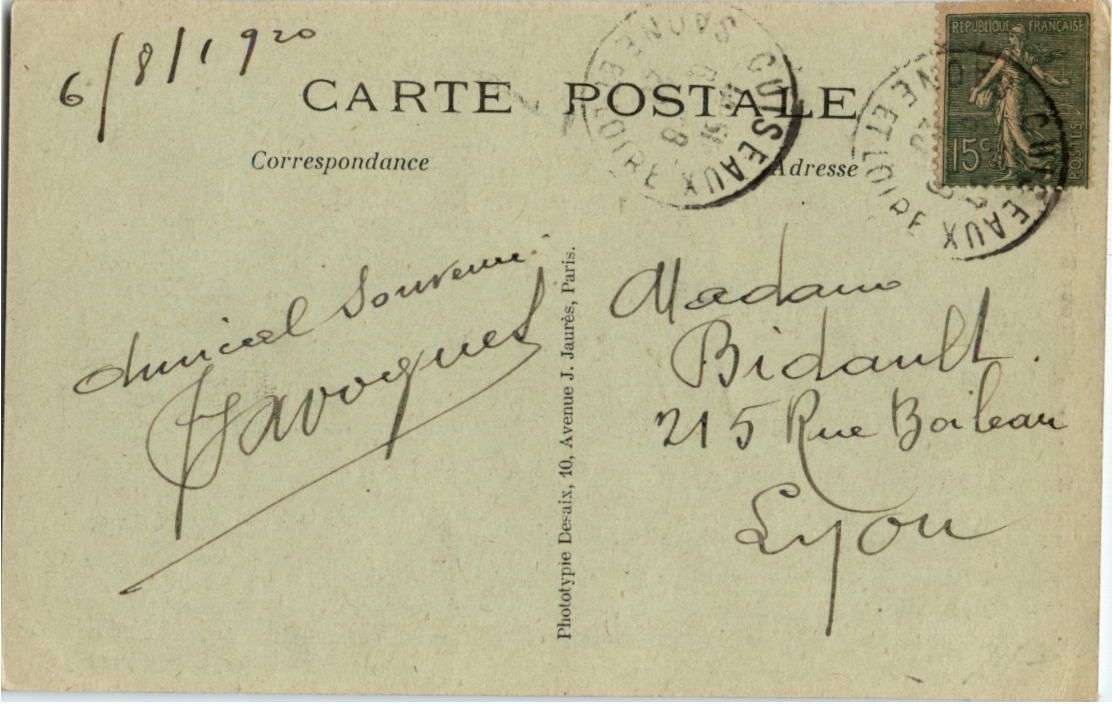 6/8/1920
CARTE POSTALE
Correspondance
Adresse
RÉPUBLIQUE FRANÇAISE
15c
POSTES
CUISEAUX
SAONE ET LOIRE
CUISEAUX
SAONE ET LOIRE
Amical Souvenir
Phototypie Desaix, 10, Avenue J. Jaurès, Paris.
Madame
Bidault.
215 Rue Boileau
Lyon